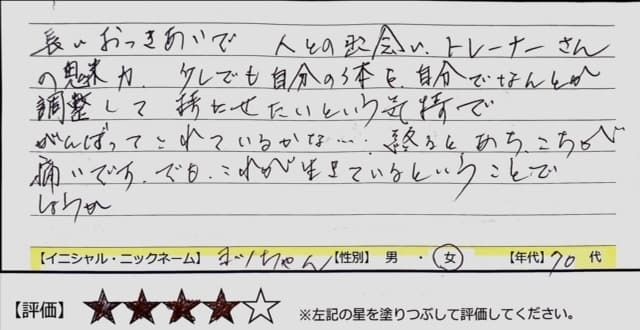 長いおつきあいで 人との出会い、トレーナーさん
の魅力、少しでも自分の体を、自分でなんとか
調整して 持たせたいという気持で
がんばってこれているかな…、終ると、あち、こちが
痛いです。でも、これが生きているということで
しょうか
【イニシャル・ニックネーム】 ちゃん 【性別】 男 ・ 女 【年代】 70 代
【評価】 ★★★★☆ ※左記の星を塗りつぶして評価してください。